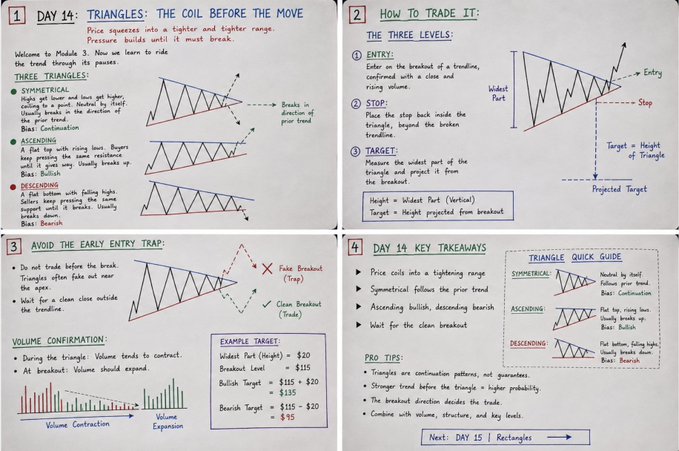 1
DAY 14: TRIANGLES: THE COIL BEFORE THE MOVE
Price squeezes into a tighter and tighter range.
Pressure builds until it must break.
Welcome to Module 3. Now we learn to ride
the trend through its pauses.
THREE TRIANGLES:
SYMMETRICAL
Highs get lower and lows get higher,
coiling to a point. Neutral by itself.
Usually breaks in the direction of
the prior trend.
Bias: Continuation
Breaks in
direction of
prior trend
ASCENDING
A flat top with rising lows. Buyers
keep pressing the same resistance
until it gives way. Usually breaks up.
Bias: Bullish
DESCENDING
A flat bottom with falling highs.
Sellers keep pressing the same
support until it breaks. Usually
breaks down.
Bias: Bearish
2
HOW TO TRADE IT:
THE THREE LEVELS:
1 ENTRY:
Enter on the breakout of a trendline,
confirmed with a close and
rising volume.
2 STOP:
Place the stop back inside the
triangle, beyond the broken
trendline.
3 TARGET:
Measure the widest part of the
triangle and project it from
the breakout.
Height = Widest Part (Vertical)
Target = Height projected from breakout
Widest
Part
Entry
Stop
Target = Height
of Triangle
Projected Target
3
AVOID THE EARLY ENTRY TRAP:
• Do not trade before the break.
Triangles often fake out near
the apex.
• Wait for a clean close outside
the trendline.
Fake Breakout
(Trap)
Clean Breakout
(Trade)
VOLUME CONFIRMATION:
• During the triangle: Volume tends to contract.
• At breakout: Volume should expand.
Volume Contraction
Volume
Expansion
EXAMPLE TARGET:
Widest Part (Height) = $20
Breakout Level = $115
Bullish Target = $115 + $20
= $135
Bearish Target = $115 − $20
= $95
4
DAY 14 KEY TAKEAWAYS
Price coils into a tightening range
Symmetrical follows the prior trend
Ascending bullish, descending bearish
Wait for the clean breakout
TRIANGLE QUICK GUIDE
SYMMETRICAL:
Neutral by itself.
Follows prior trend.
Bias: Continuation
ASCENDING:
Flat top, rising lows.
Usually breaks up.
Bias: Bullish
DESCENDING:
Flat bottom, falling highs.
Usually breaks down.
Bias: Bearish
PRO TIPS:
• Triangles are continuation patterns, not guarantees.
• Stronger trend before the triangle = higher probability.
• The breakout direction decides the trade.
• Combine with volume, structure, and key levels.
Next: DAY 15 | Rectangles